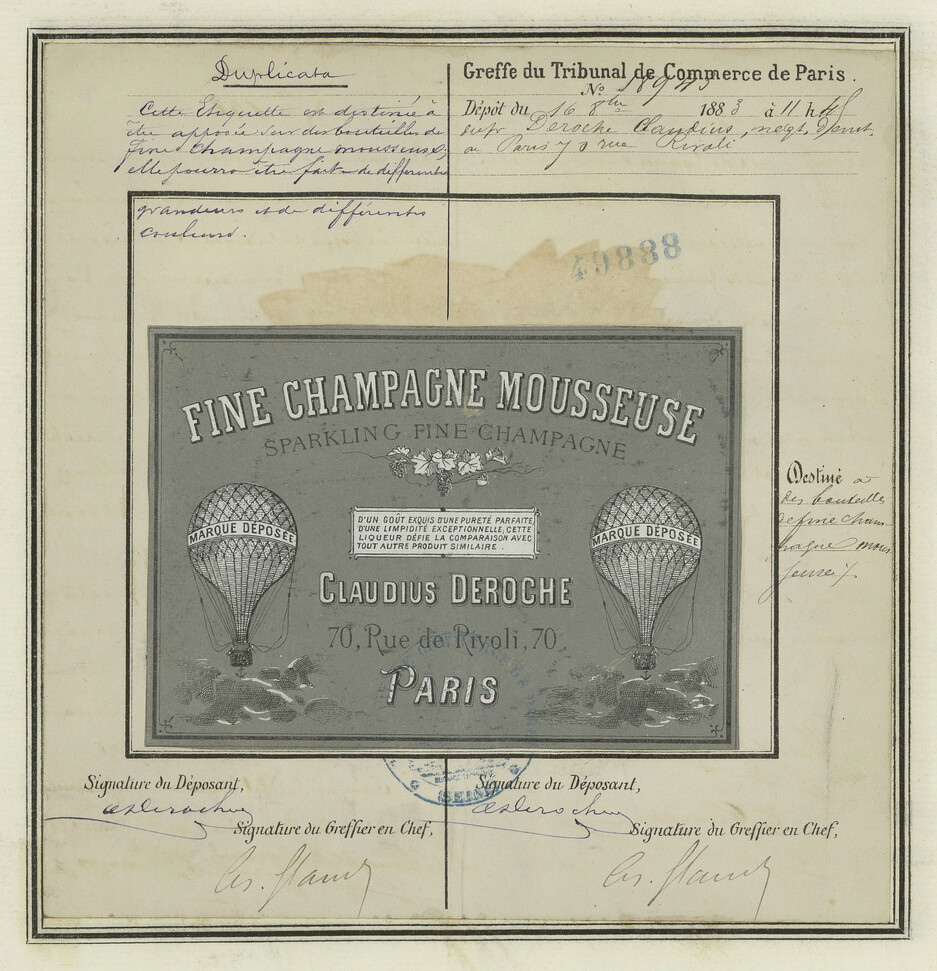 Duplicata
Cette Etiquette est destinée à
être apposée sur des bouteilles de
Fine Champagne mousseuse,
elle pourra être faite de différentes
grandeurs et de différentes
couleurs.
Greffe du Tribunal de Commerce de Paris.
No.
Dépôt du 16 8bre 1883 à 11 h 45
Deroche Claudius, négt, demt.
à Paris 70 rue Rivoli
49888
FINE CHAMPAGNE MOUSSEUSE
SPARKLING FINE CHAMPAGNE
MARQUE DÉPOSÉE
D'UN GOÛT EXQUIS D'UNE PURETÉ PARFAITE,
D'UNE LIMPIDITÉ EXCEPTIONNELLE, CETTE
LIQUEUR DÉFIE LA COMPARAISON AVEC
TOUT AUTRE PRODUIT SIMILAIRE.
MARQUE DÉPOSÉE
CLAUDIUS DEROCHE
70, Rue de Rivoli, 70
PARIS
Destiné à
des bouteilles
de fine cham
pagne mous
seuse
SEINE
Signature du Déposant,
Signature du Greffier en Chef,
Signature du Déposant,
Signature du Greffier en Chef,